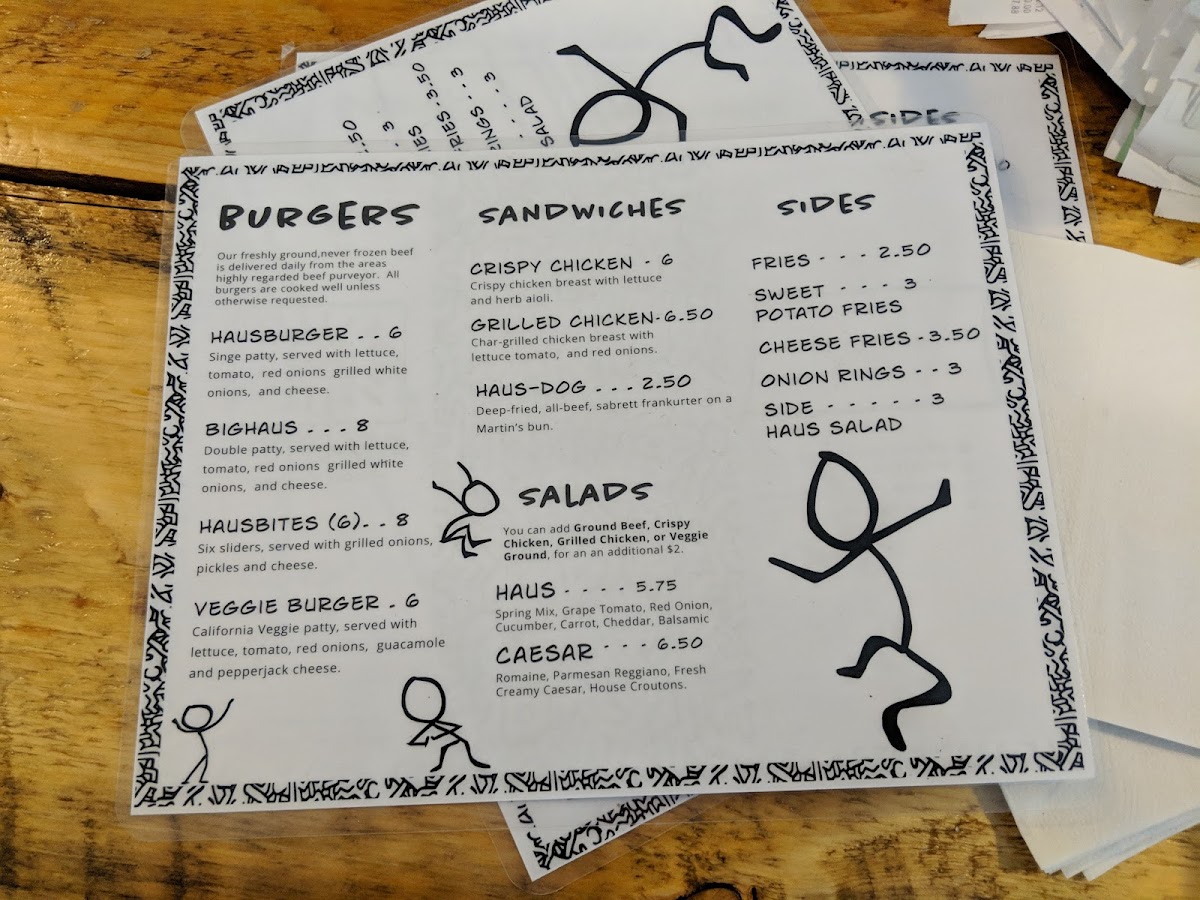 BURGERS
Our freshly ground,never frozen beef
is delivered daily from the areas
highly regarded beef purveyor. All
burgers are cooked well unless
otherwise requested.
HAUSBURGER . . 6
Singe patty, served with lettuce,
tomato, red onions grilled white
onions, and cheese.
BIGHAUS . . . 8
Double patty, served with lettuce,
tomato, red onions grilled white
onions, and cheese.
HAUSBITES (6). . 8
Six sliders, served with grilled onions,
pickles and cheese.
VEGGIE BURGER . 6
California Veggie patty, served with
lettuce, tomato, red onions, guacamole
and pepperjack cheese.
SANDWICHES
CRISPY CHICKEN - 6
Crispy chicken breast with lettuce
and herb aioli.
GRILLED CHICKEN-6.50
Char-grilled chicken breast with
lettuce tomato, and red onions.
HAUS-DOG . . . 2.50
Deep-fried, all-beef, sabrett frankurter on a
Martin's bun.
SALADS
You can add Ground Beef, Crispy
Chicken, Grilled Chicken, or Veggie
Ground, for an an additional $2.
HAUS - - - - 5.75
Spring Mix, Grape Tomato, Red Onion,
Cucumber, Carrot, Cheddar, Balsamic
CAESAR - - - 6.50
Romaine, Parmesan Reggiano, Fresh
Creamy Caesar, House Croutons.
SIDES
FRIES - - - 2.50
SWEET - - - 3
POTATO FRIES
CHEESE FRIES - 3.50
ONION RINGS - - 3
SIDE - - - - - 3
HAUS SALAD
SIDES
.50
- 3
RIES-3.50
RINGS - - 3
- - - - 3
SALAD